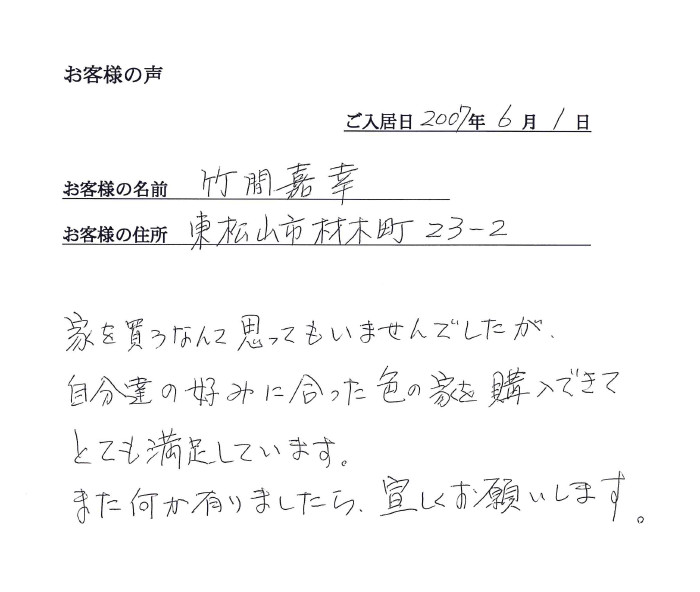 お客様の声
ご入居日 2007年 6月 1日
お客様の名前 竹間嘉幸
お客様の住所 東松山市材木町 23-2
家を買うなんて思ってもいませんでしたが、
自分達の好みに合った色の家を購入できて
とても満足しています。
また何か有りましたら、宜しくお願いします。